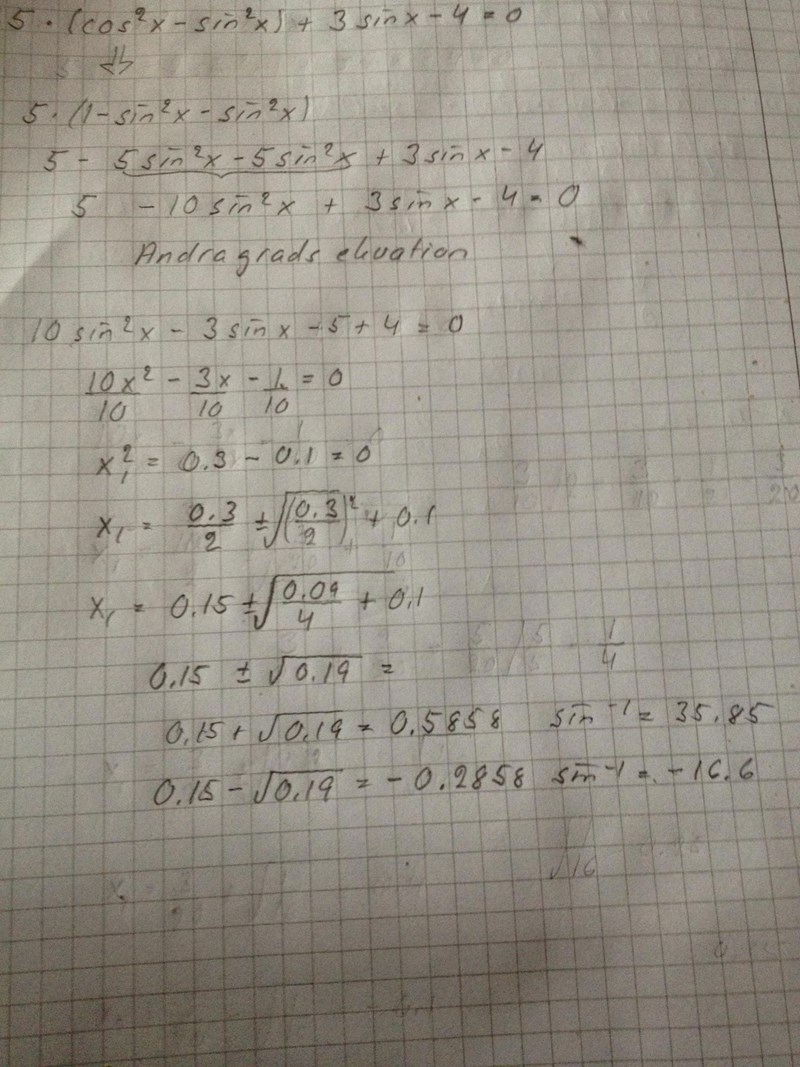 5 · (cos²x - sin²x) + 3 sinx - 4 = 0
5 · (1 - sin²x - sin²x)
5 - 5 sin²x - 5 sin²x + 3 sinx - 4
5 - 10 sin²x + 3 sinx - 4 = 0
Andragrads ekvation
10 sin²x - 3 sinx - 5 + 4 = 0
10x²/10 - 3x/10 - 1/10 = 0
x₁² = 0.3 - 0.1 = 0
x₁ = 0.3/2 ± √(0.3/2)² + 0.1
x₁ = 0.15 ± √0.09/4 + 0.1
1/4
0.15 ± √0.19 =
0.15 + √0.19 = 0.5858 sin⁻¹ = 35.85
0.15 - √0.19 = -0.2858 sin⁻¹ = -16.6